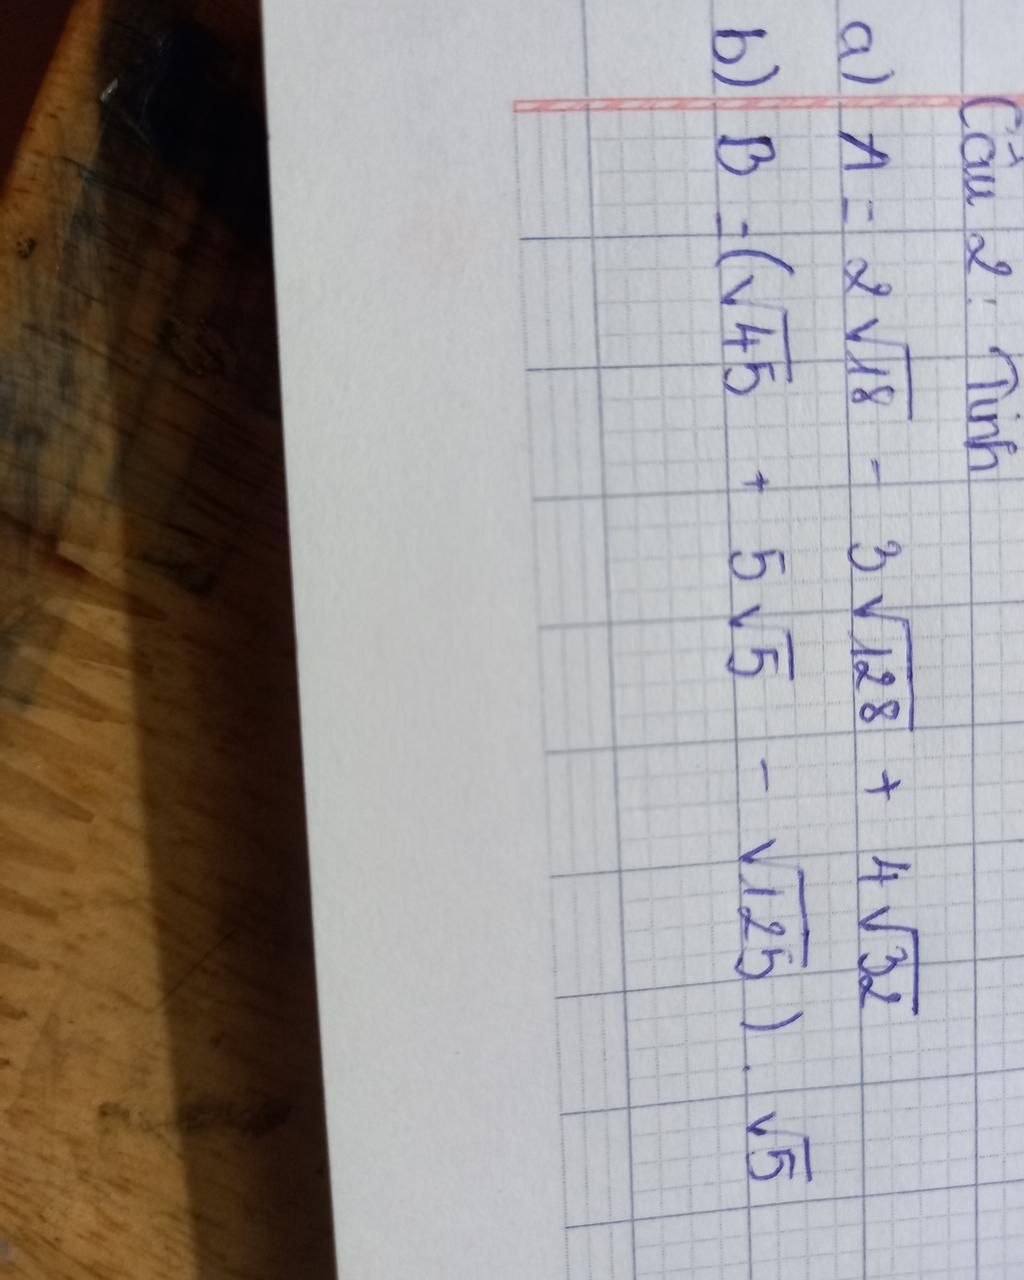 Câu 2: Tính
a) A = 2√18 - 3√128 + 4√32
b) B = (√45 + 5√5 - √125) . √5